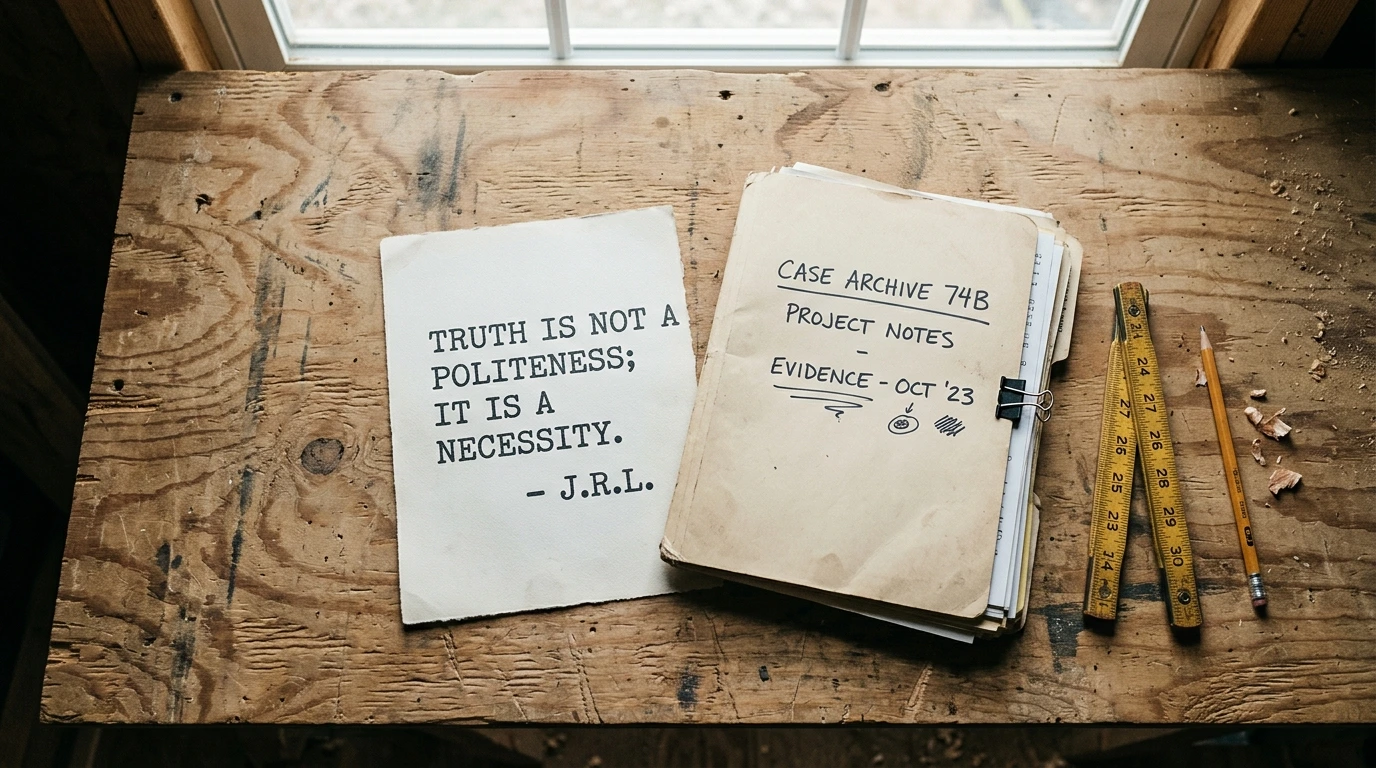 TRUTH IS NOT A
POLITENESS;
IT IS A
NECESSITY.
– J.R.L.
CASE ARCHIVE 74B
PROJECT NOTES
–
EVIDENCE – OCT '23
21
24
27
27
26
26
28
25
29
23
30